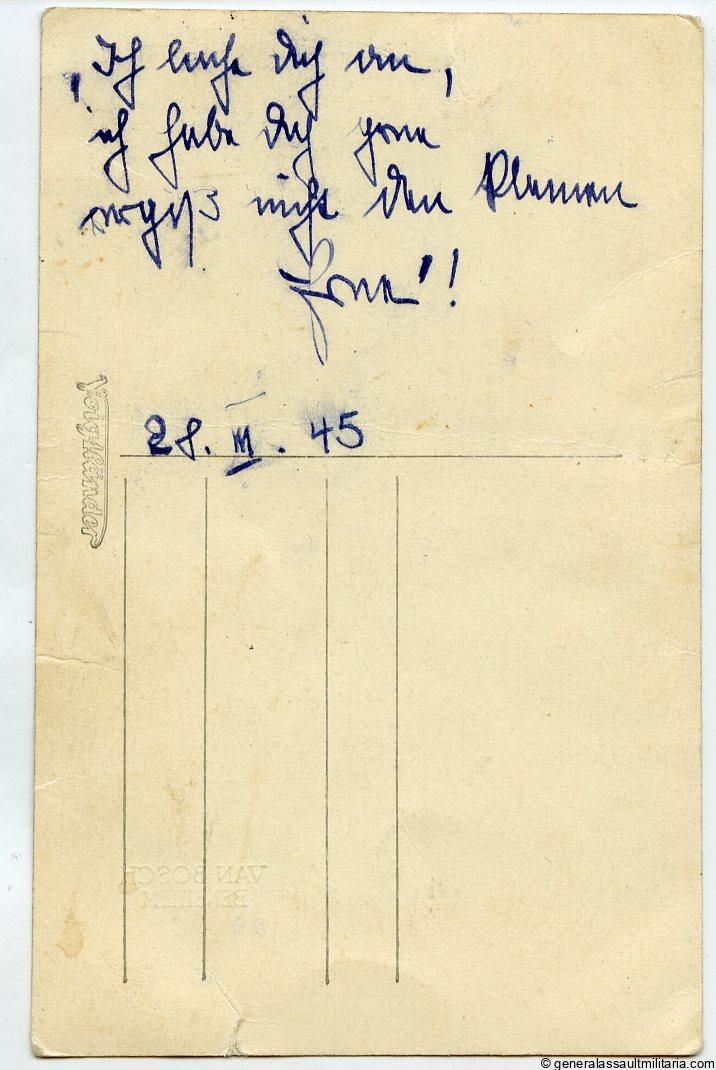 „Ich lache dich an,
ich habe dich gerne
vergiß nicht den kleinen
28. III. 45
Voigtländer
VAN BOSCH
© generalassaultmilitaria.com